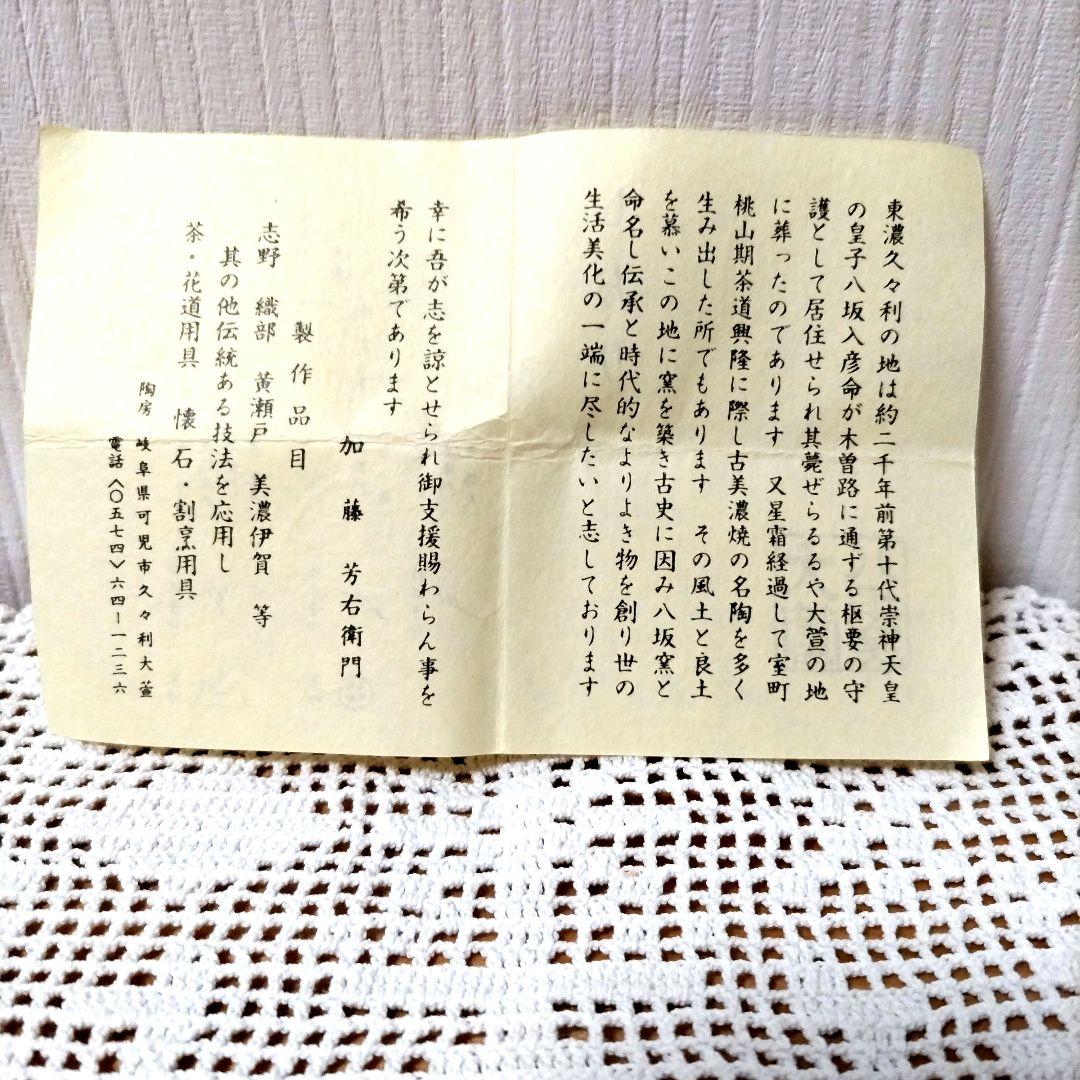 東濃久々利の地は約二千年前第十代崇神天皇
の皇子八坂入彦命が木曽路に通ずる枢要の守
護として居住せられ其薨ぜらるるや大萱の地
に葬ったのであります　又星霜経過して室町
桃山期茶道興隆に際し古美濃焼の名陶を多く
生み出した所でもあります　その風土と良土
を慕いこの地に窯を築き古史に因み八坂窯と
命名し伝承と時代的なよりよき物を創り世の
生活美化の一端に尽したいと志しております
幸に吾が志を諒とせられ御支援賜わらん事を
希う次第であります
加藤芳右衛門
製作品目
志野　織部　黄瀬戸　美濃伊賀　等
其の他伝統ある技法を応用し
茶・花道用具　懐石・割烹用具
陶房　岐阜県可児市久々利大萱
電話〈〇五七四〉六四ー一二三六